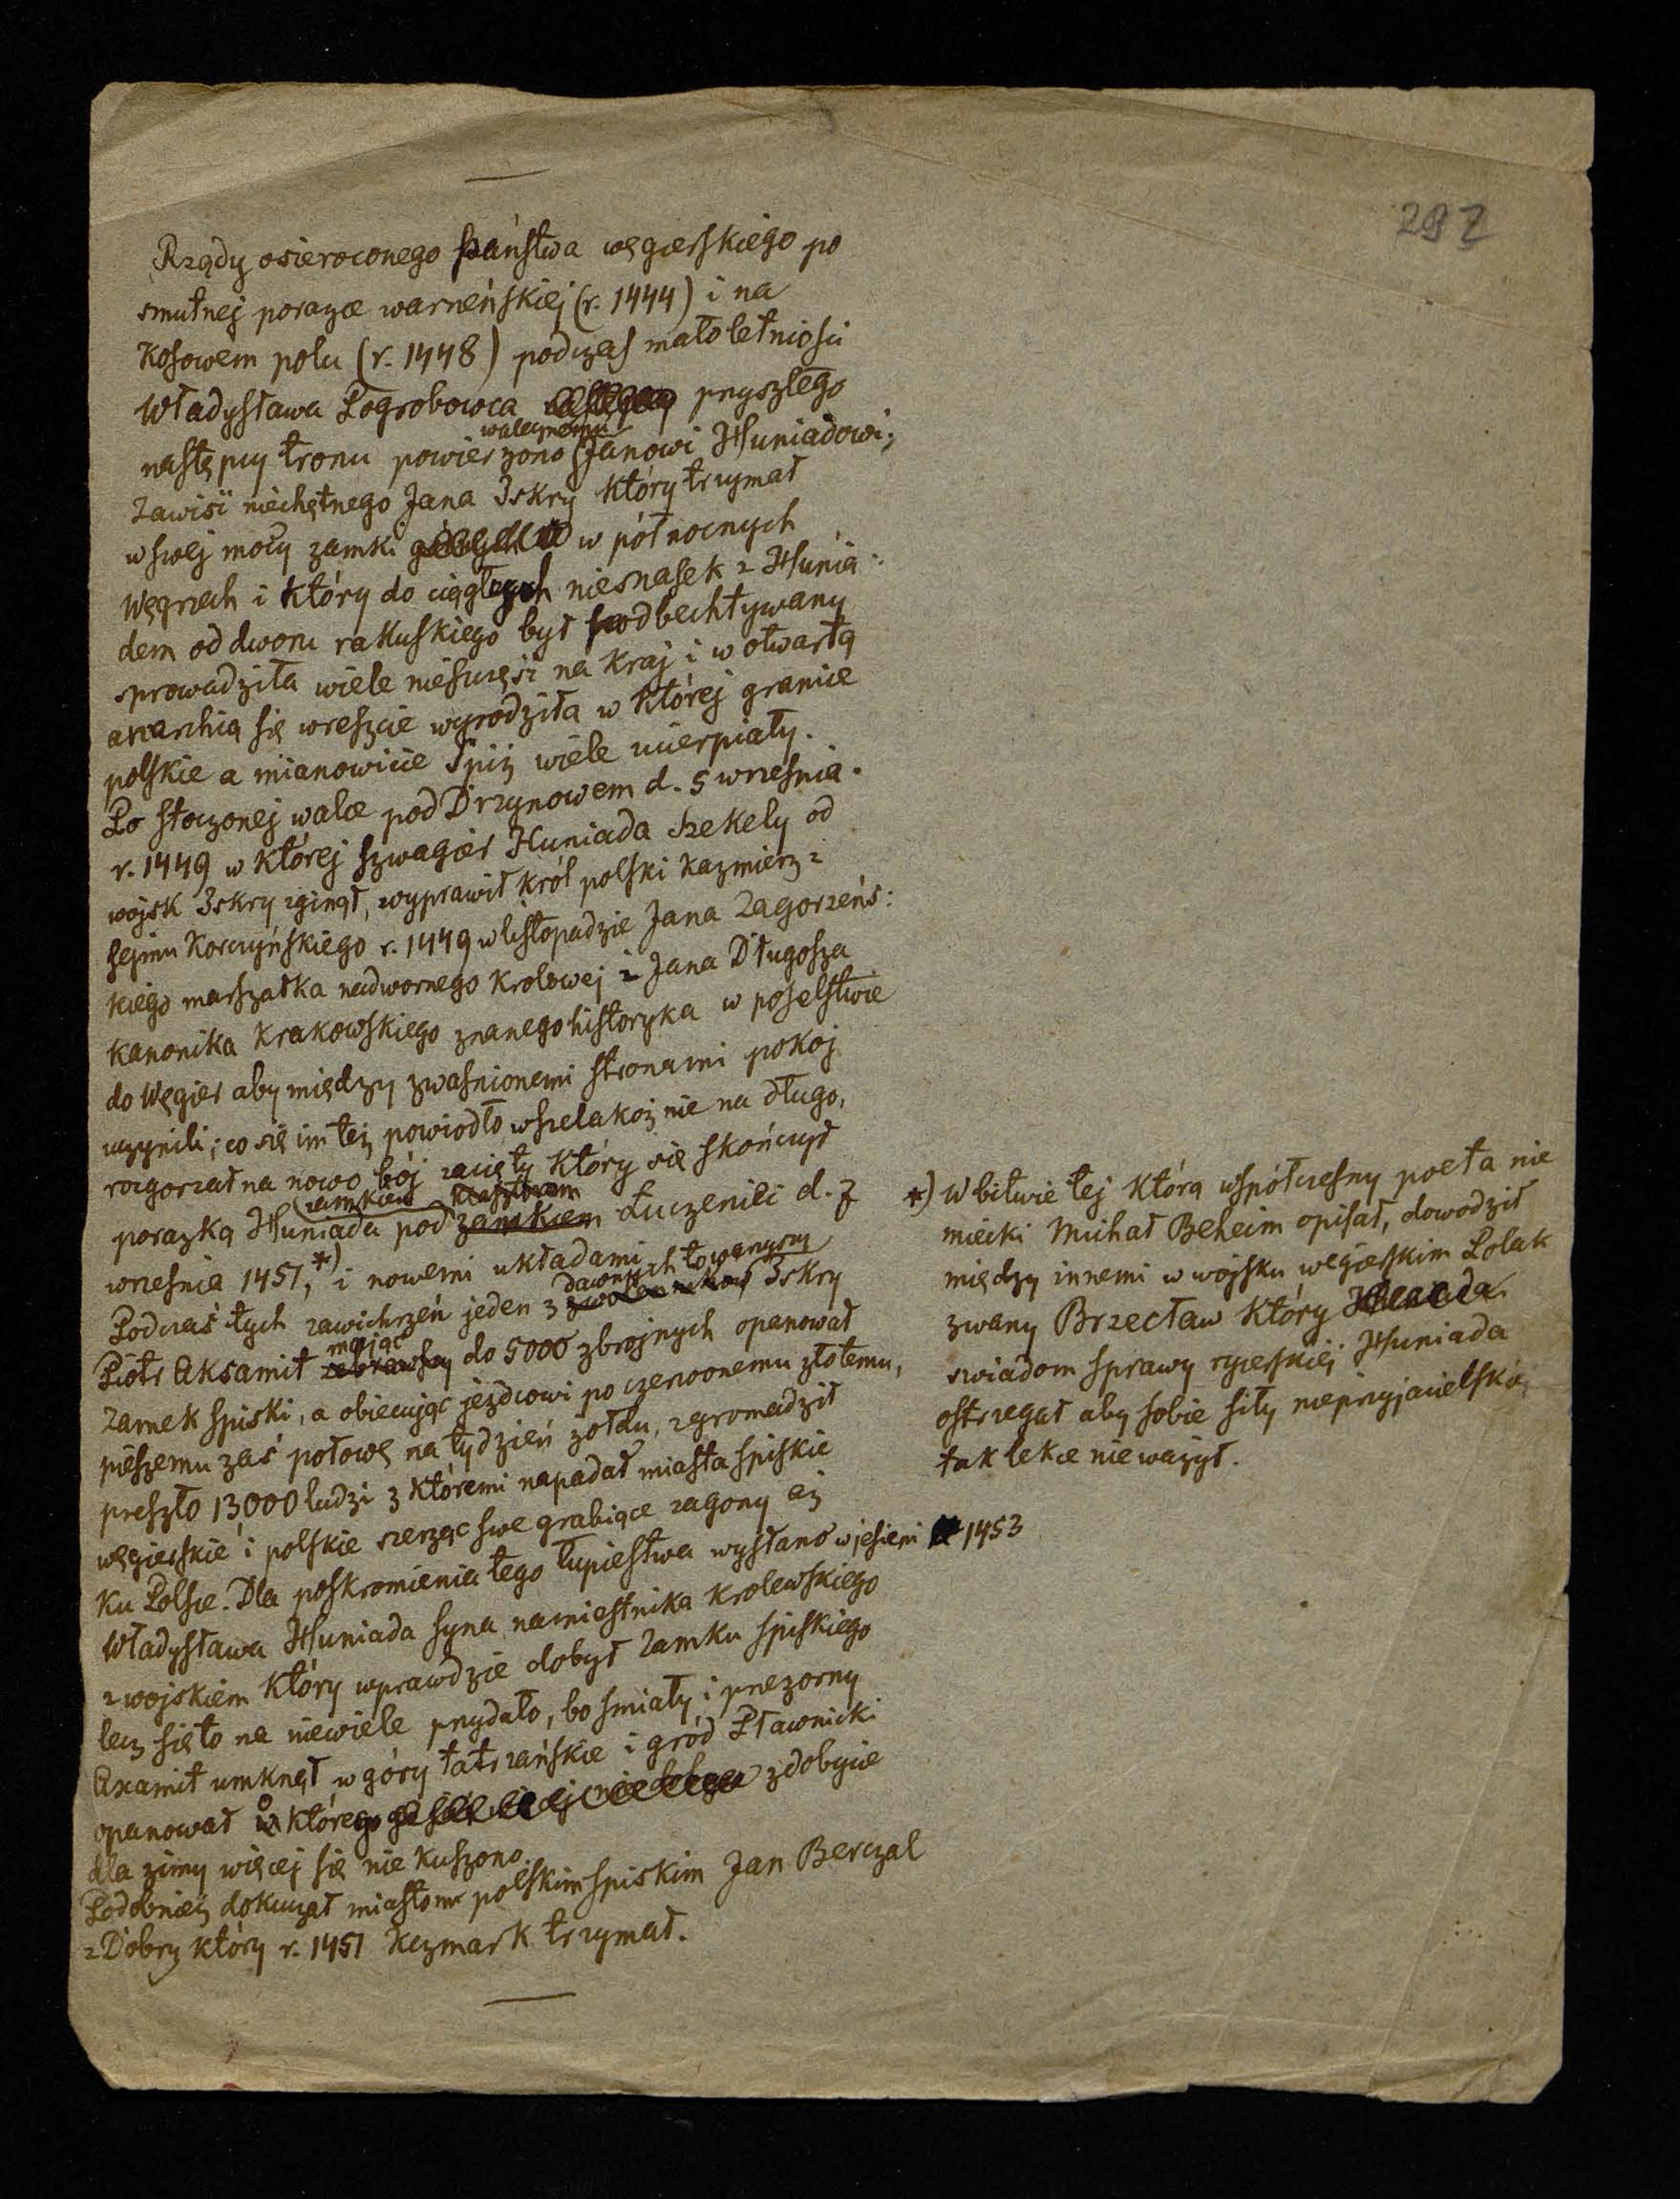 297
Rządy osieroconego państwa węgierskiego po
smutnej porażce warneńskiej (r. 1444) i na
Kosowem polu (r. 1448) podczas małoletniości
Władysława Pogrobowca przyszłego
następcy tronu powierzono walecznemu Janowi Huniadowi;
Zawiść niechętnego Jana Iskry który trzymał
w swej mocy zamki w północnych
Węgrzech i który do ciągłych niesnasek z Hunia:
dem od dworu rakuskiego był podbechtywany
sprowadziła wiele nieszczęść na kraj i w otwartą
anarchią się wreszcie wyrodziła w której granice
polskie a mianowicie Spiż wiele ucierpiały.
Po stoczonej walce pod Drzynowem d. 5 września.
r. 1449 w której szwagier Huniada Szekely od
wojsk Iskry zginął, wyprawił król polski Kazmierz z
sejmu Korczyńskiego r. 1449 w listopadzie Jana Zagorzeńs:
kiego marszałka nadwornego krolowej i Jana Długosza
kanonika krakowskiego znanego historyka w poselstwie
do Węgier aby między zwaśnionemi stronami pokoj
uczynili; co się im też powiodło, wszelakoż nie na długo,
rozgorzał na nowo bój zacięty który się skończył
porażką Huniada pod zamkiem klasztorem zamkiem Łuczenili d. 7
września 1451,*) i nowemi układami
Podczas tych zawichrzeń jeden z dawnych towarzyszy zwolenników Iskry
Piotr Aksamit mając zebrawszy do 5000 zbrojnych opanował
zamek spiski, a obiecując jeźdcowi po czerwonemu złotemu,
pieszemu zaś połowę na tydzień żołdu, zgromadził
przeszło 13000 ludzi z któremi napadał miasta spiskie
węgierskie i polskie szerząc swe grabiące zagony aż
ku Polsce. Dla poskromienia tego łupiestwa wysłano w jesieni 1453
Władysława Huniada syna namiestnika krolewskiego
z wojskiem który wprawdzie dobył zamku spiskiego
lecz się to na niewiele przydało, bo śmiały i przezorny
Axamit umknął w góry tatrzańskie i gród Pławnicki
opanował o którego zdobycie
dla zimy więcej się nie kuszono.
Podobnież dokuczał miastom polskim spiskim Jan Berczal
z Dobry który r. 1451 Kezmark trzymał.
*) W bitwie tej którą współczesny poeta nie
miecki Michał Beheim opisał, dowodził
między innemi w wojsku węgierskim Polak
zwany Brzecław który
świadom sprawy rycerskiej Huniada
ostrzegał aby sobie siły nieprzyjacielskie
tak lekce nie ważył.